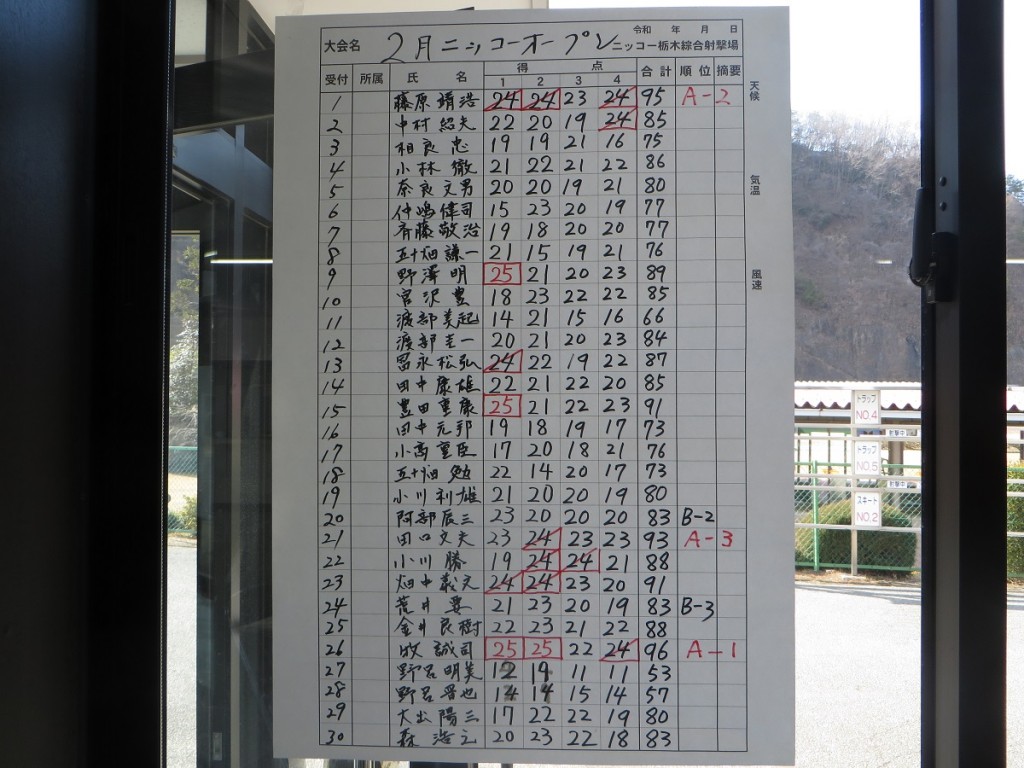 令和 年 月 日
大会名 2月ニッコーオープン ニッコー栃木綜合射撃場
受付 所属 氏名 得点 合計 順位 摘要
1 2 3 4
1 藤原靖浩 24 24 23 24 95 A-2
2 中村紹夫 22 20 19 24 85
3 相良忠 19 19 21 16 75
4 小林徹 21 22 21 22 86
5 奈良文男 20 20 19 21 80
6 仲嶋偉司 15 23 20 19 77
7 斉藤敬治 19 18 20 20 77
8 五十畑謙一 21 15 19 21 76
9 野澤明 25 21 20 23 89
10 宮沢豊 18 23 22 22 85
11 渡部美起 14 21 15 16 66
12 渡部圭一 20 21 20 23 84
13 冨永松弘 24 22 19 22 87
14 田中康雄 22 21 22 20 85
15 豊田重康 25 21 22 23 91
16 田中元邦 19 18 19 17 73
17 小高重臣 17 20 18 21 76
18 五十畑勉 22 14 20 17 73
19 小川利雄 21 20 20 19 80
20 阿部辰三 23 20 20 20 83 B-2
21 田口文夫 23 24 23 23 93 A-3
22 小川勝 19 24 24 21 88
23 畑中義元 24 24 23 20 91
24 荒井要 21 23 20 19 83 B-3
25 金井良樹 22 23 21 22 88
26 牧誠司 25 25 22 24 96 A-1
27 野呂明美 12 19 11 11 53
28 野呂晋也 14 14 15 14 57
29 大出陽三 17 22 22 19 80
30 森浩之 20 23 22 18 83
天候
気温
風速
トラップ
NO.4
トラップ
NO.5
スキート
NO.2